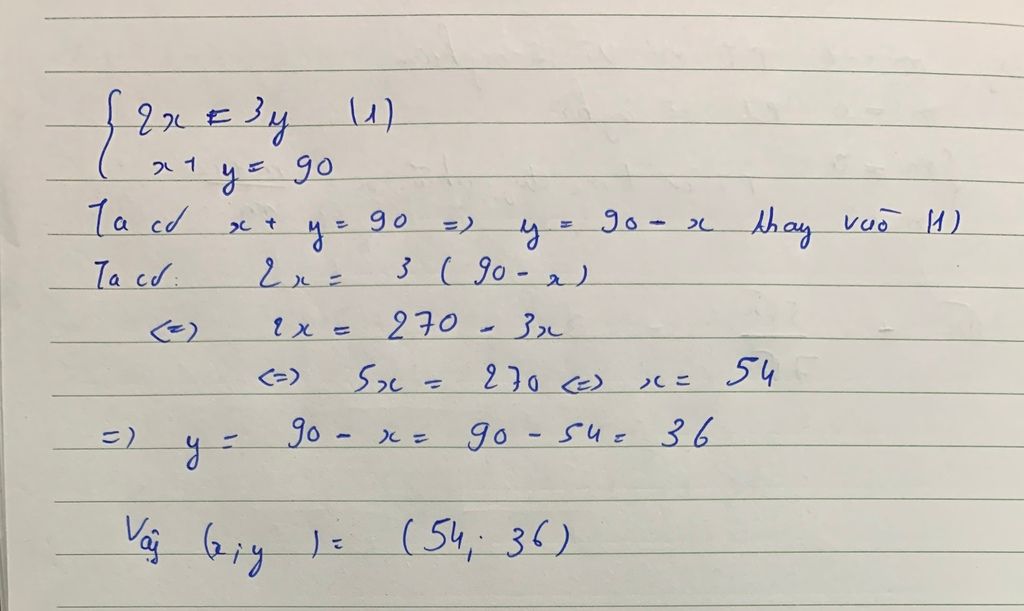 { 2x = 3y (1)
x + y = 90
Ta có x + y = 90 => y = 90 - x thay vào (1)
Ta có: 2x = 3 (90 - x)
<=> 2x = 270 - 3x
<=> 5x = 270 <=> x = 54
=> y = 90 - x = 90 - 54 = 36
Vậy (x; y) = (54; 36)